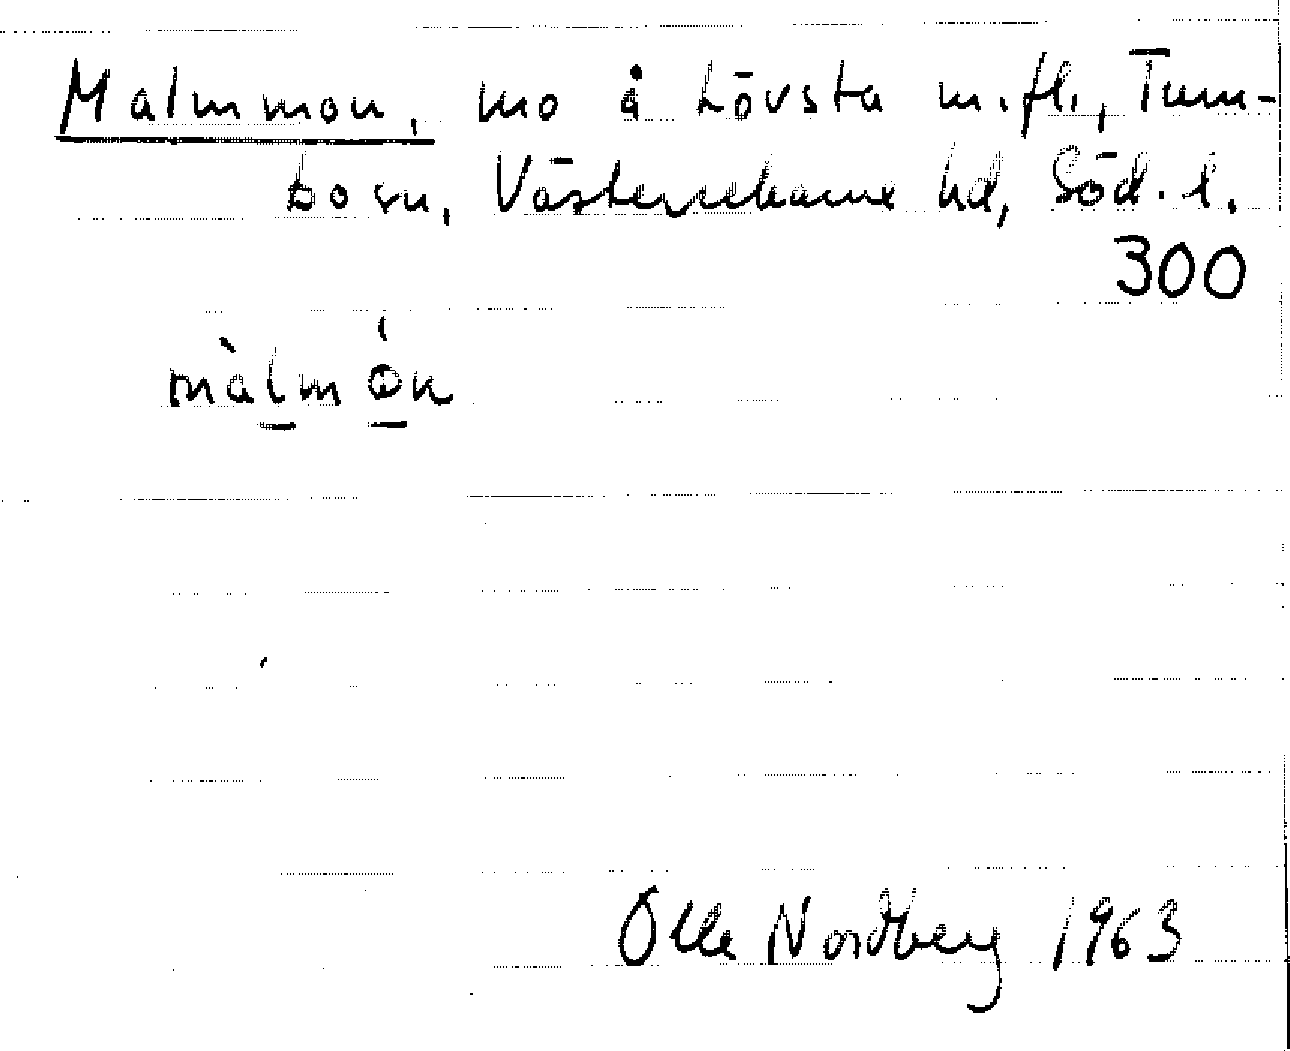 Malmmon, mo å Lövsta m.fl., Tum-
bosn, Västerrekarne hd, Söd. l.
300
màlmón
Olle Nordberg 1963